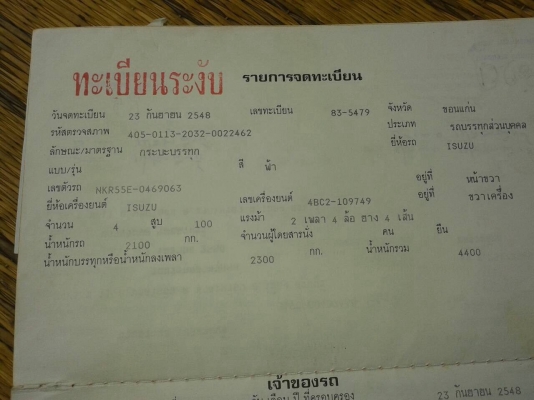 ทะเบียนระงับ รายการจดทะเบียน
วันจดทะเบียน 23 กันยายน 2548 เลขทะเบียน 83-5479 จังหวัด ขอนแก่น
รหัสตรวจสภาพ 405-0113-2032-0022462 ประเภท รถบรรทุกส่วนบุคคล
ลักษณะ/มาตรฐาน กระบะบรรทุก ยี่ห้อรถ ISUZU
แบบ/รุ่น สี ฟ้า
เลขตัวรถ NKR55E-0469063 อยู่ที่ หน้าขวา
ยี่ห้อเครื่องยนต์ ISUZU เลขเครื่องยนต์ 4BC2-109749 อยู่ที่ ขวาเครื่อง
จำนวน 4 สูบ 100 แรงม้า 2 เพลา 4 ล้อ ยาง 4 เส้น
น้ำหนักรถ 2100 กก. จำนวนผู้โดยสารนั่ง คน ยืน
น้ำหนักบรรทุกหรือน้ำหนักลงเพลา 2300 กก. น้ำหนักรวม 4400
เจ้าของรถ
วันเดือน ปี ที่ครอบครอง 23 กันยายน 2548